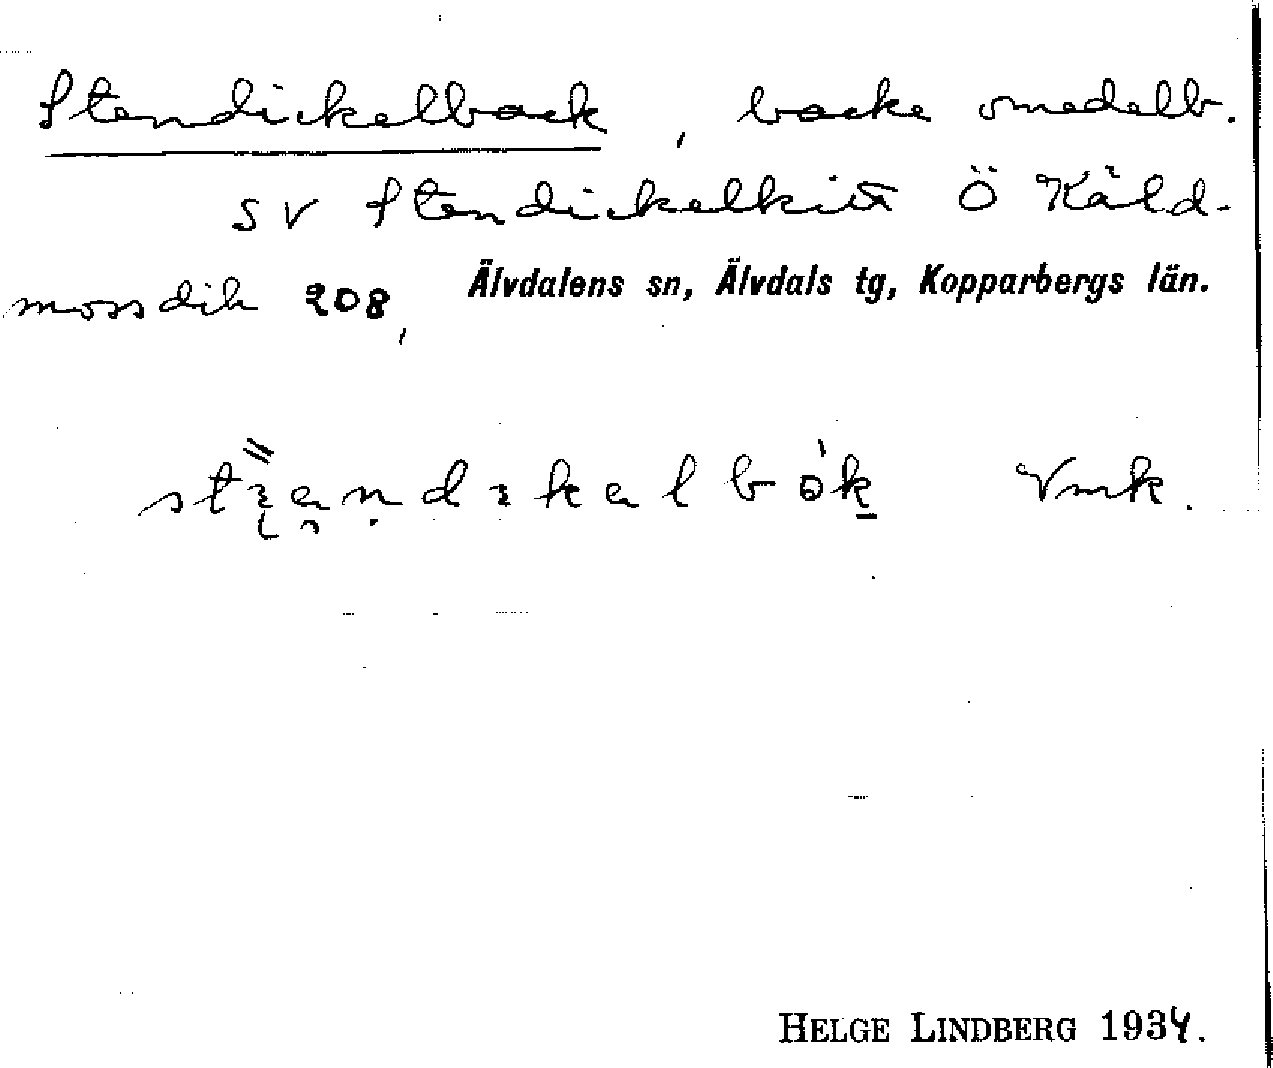 Stendickelback, backe omedelb.
SV Stendickelkitt Ö Käld-
mossdik 208, Älvdalens sn, Älvdals tg, Kopparbergs län.
Vmk.
HELGE LINDBERG 1934.